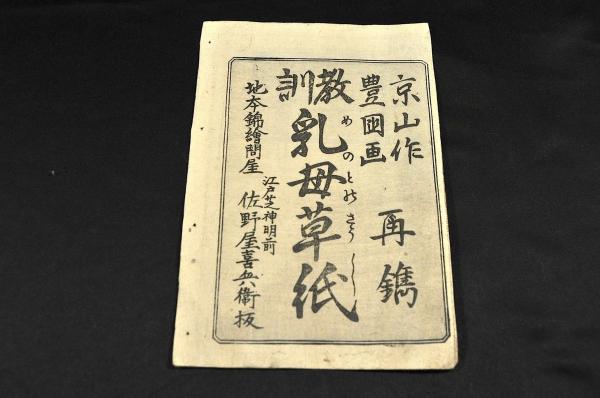 京山作
豊国画
再鐫
教訓
乳母草紙
めのとのさうし
地本錦繪問屋
江戸芝神明前
佐野屋喜兵衛板